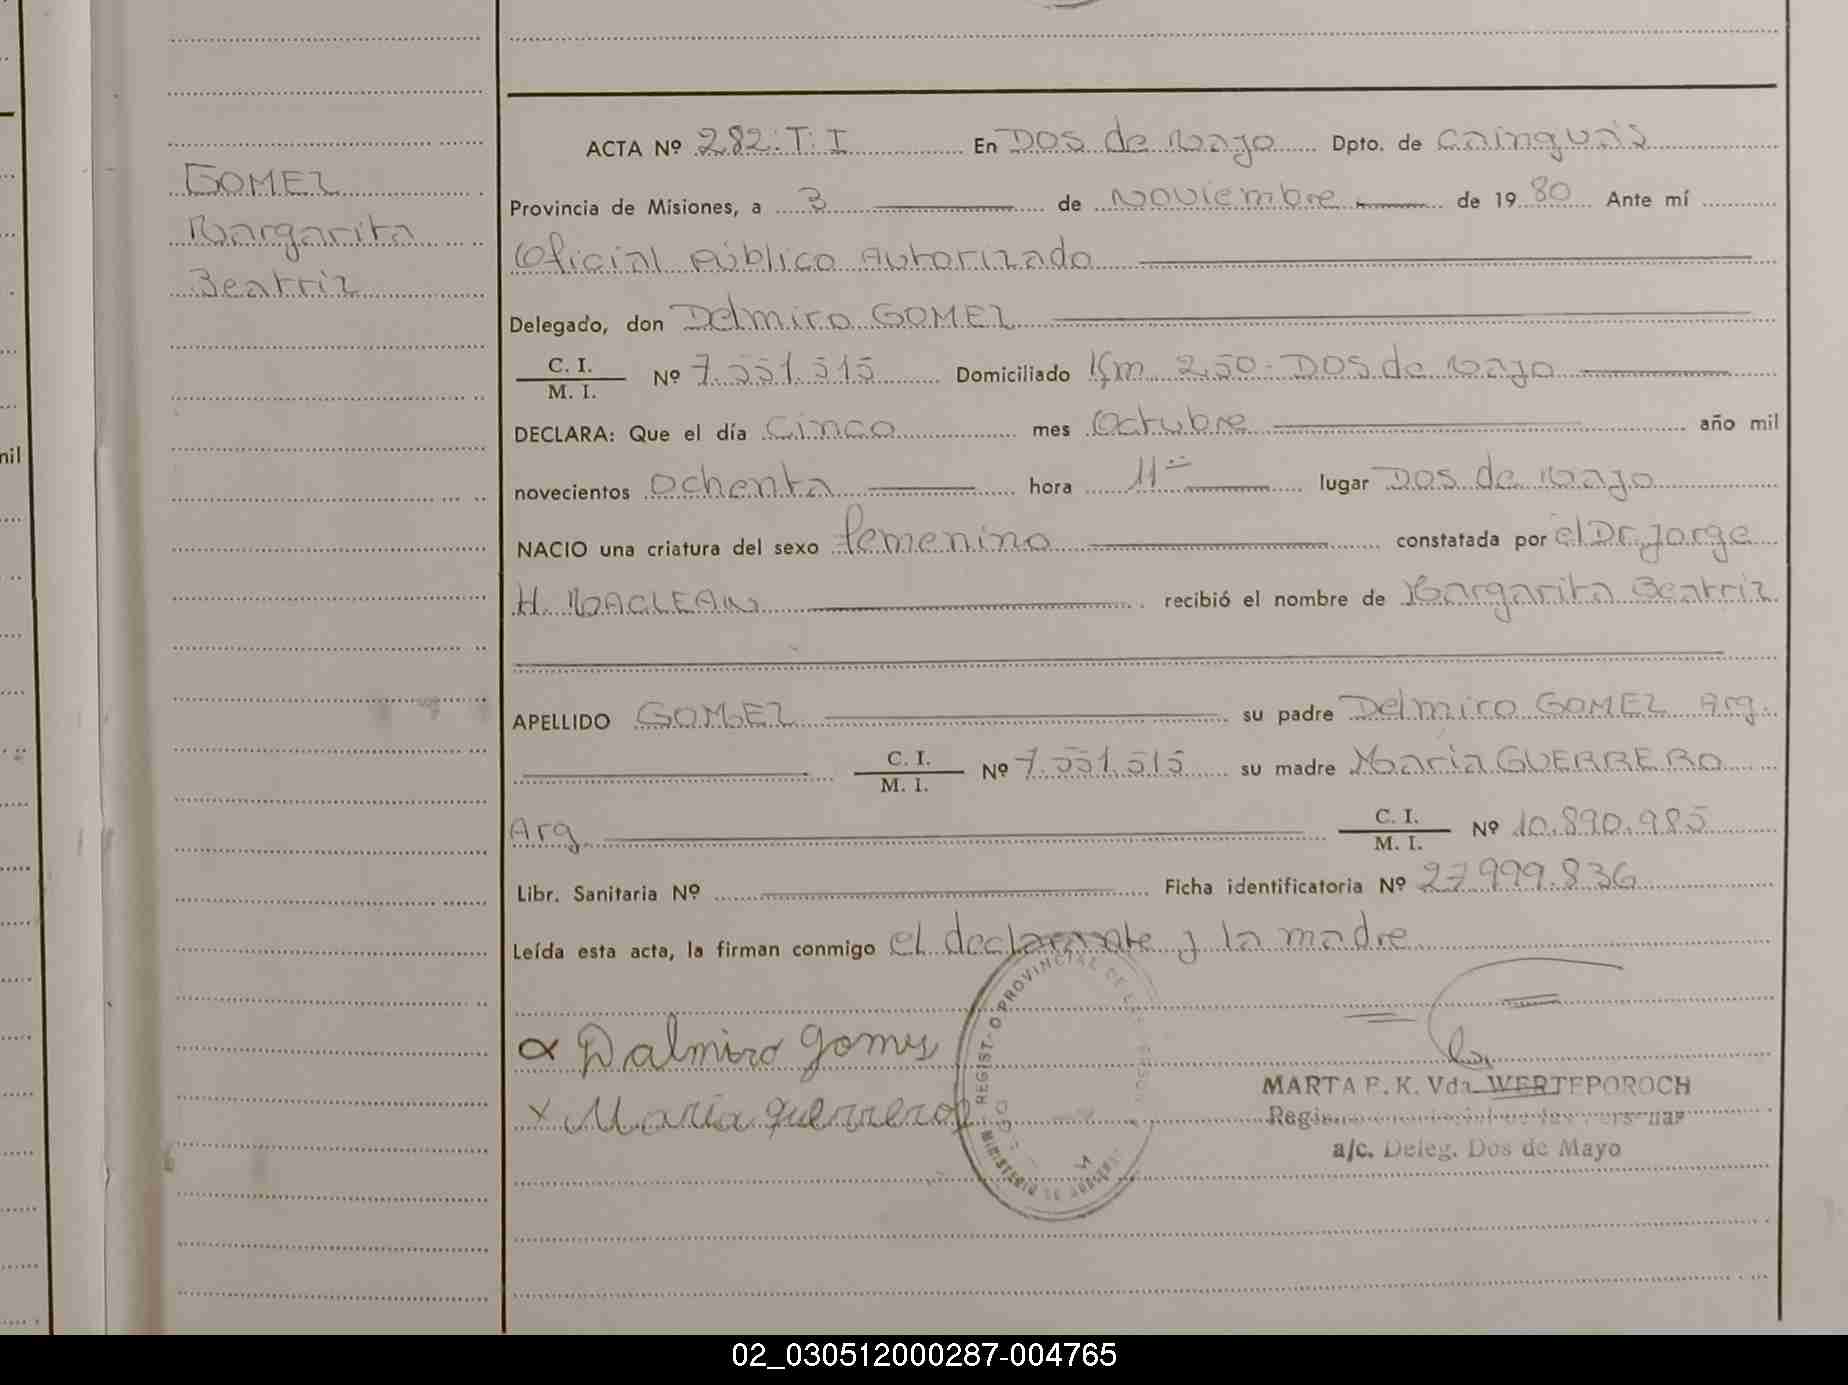 GOMEZ
Margarita
Beatriz
ACTA Nº 282. T. I En Dos de Mayo Dpto. de Cainguás
Provincia de Misiones, a 3 de Noviembre de 1980 Ante mí
Oficial Público Autorizado
Delegado, don Delmiro GOMEZ
C. I.
M. I. Nº 7.551.515 Domiciliado Km 250- Dos de Mayo
DECLARA: Que el día cinco mes Octubre año mil
novecientos Ochenta hora 11 lugar Dos de Mayo
NACIO una criatura del sexo femenino constatada por el Dr. Jorge
H. MACLEAN recibió el nombre de Margarita Beatriz
APELLIDO GOMEZ su padre Delmiro GOMEZ Arg.
C. I.
M. I. Nº 7.551.515 su madre María GUERRERO
Arg. C. I.
M. I. Nº 10.890.985
Libr. Sanitaria Nº Ficha identificatoria Nº 27.999.836
Leída esta acta, la firman conmigo el declarante y la madre
x Dalmiro gomes
x María guerrero
REGISTRO PROVINCIAL DE
MINISTERIO DE GOBIERNO
MARTA F. K. Vda. WERTEPOROCH
a/c. Deleg. Dos de Mayo
mil
02_030512000287-004765